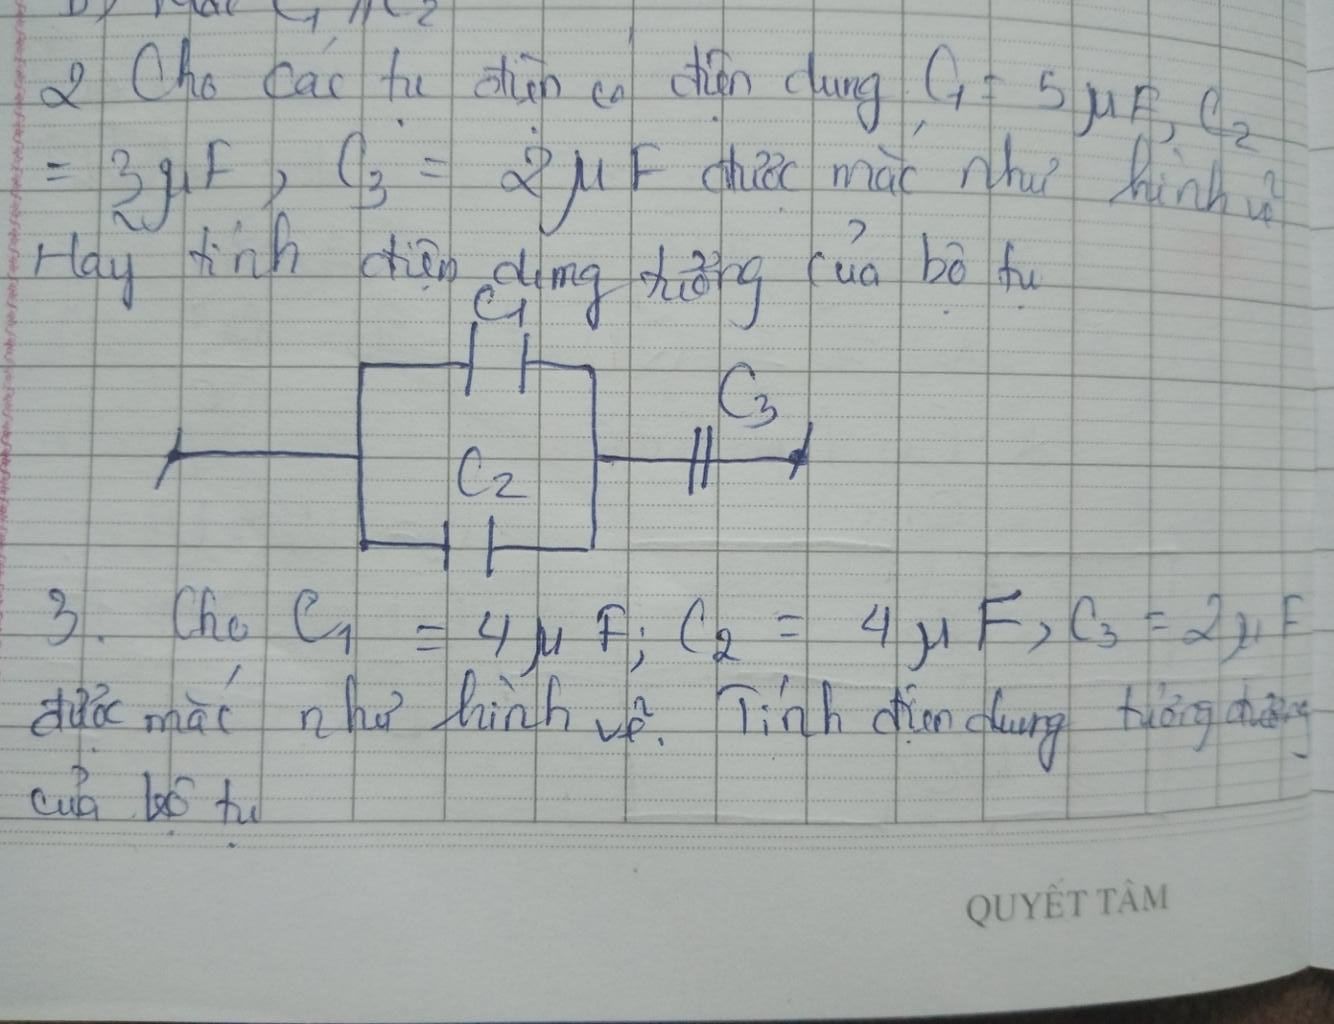 b) Mắc C1 // C2
2 Cho các tụ điện có điện dung C1 = 5 μF, C2
= 3 μF, C3 = 2 μF được mắc như hình vẽ
Hãy tính điện dung tương của bộ tụ
C1
C3
C2
3. Cho C1 = 4 μF; C2 = 4 μF, C3 = 2 μF
được mắc như hình vẽ. Tính điện dung tương đương
của bộ tụ
QUYẾT TÂM